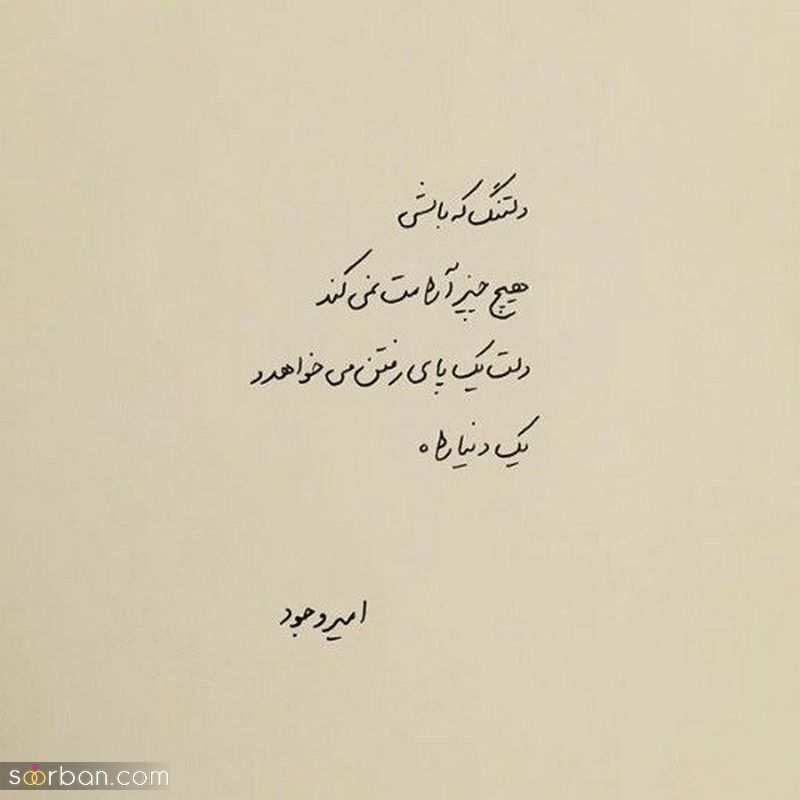 دلتنگ که باشی
هیچ چیز آرامت نمی کند
دلت یک پای رفتن می خواهد و
یک دنیا راه
امیر وجود
soorban.com